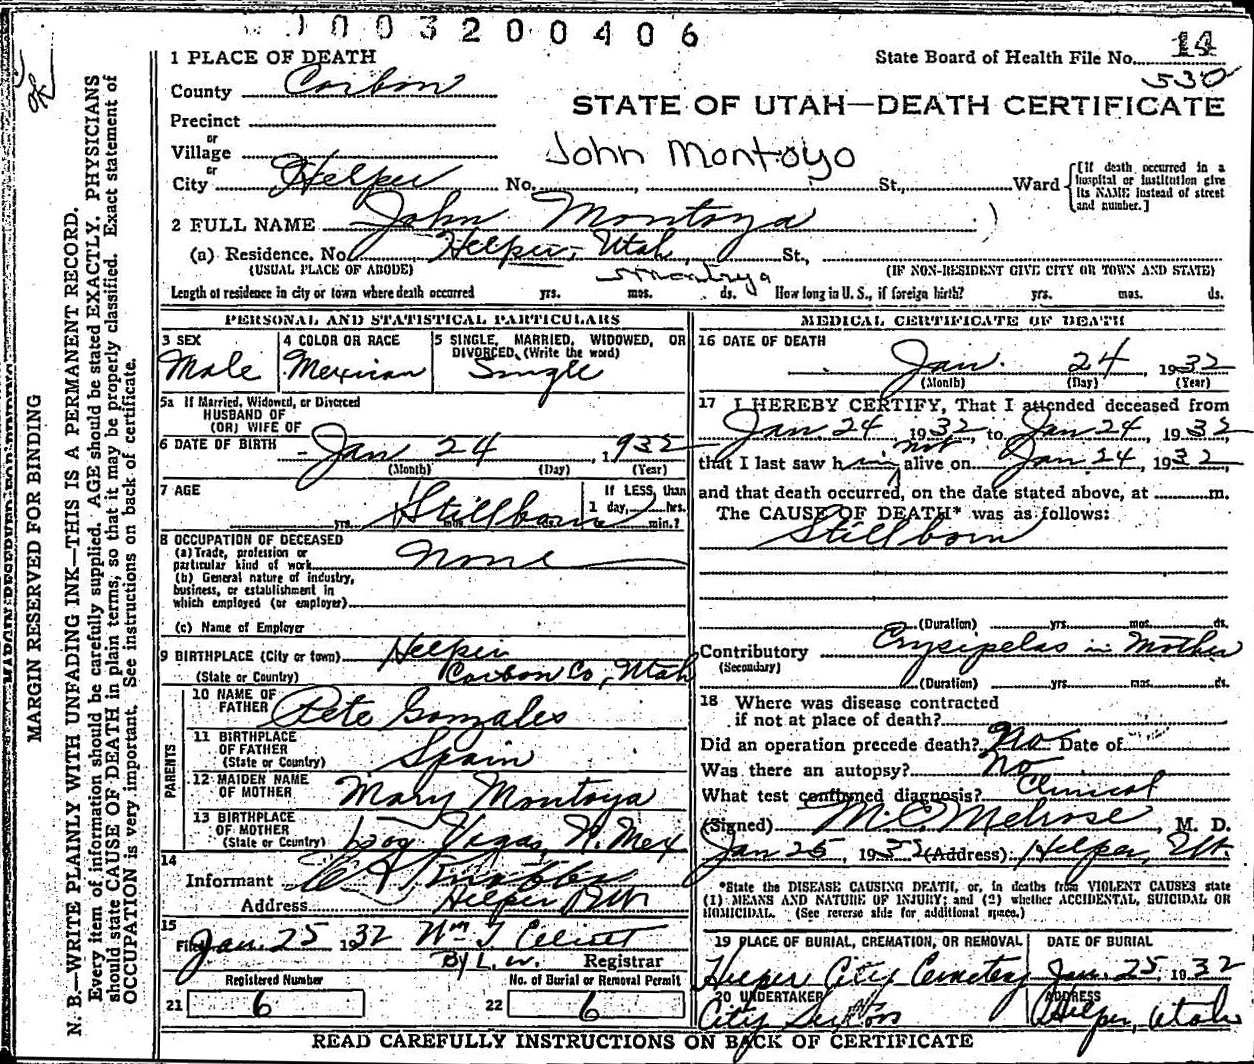 1003200406
14
State Board of Health File No.
530
1 PLACE OF DEATH
County Carbon
STATE OF UTAH—DEATH CERTIFICATE
Precinct
or
Village
John Montoyo
or
City Helper No. , St., Ward
[If death occurred in a hospital or institution give its NAME instead of street and number.]
2 FULL NAME John Montoya
(a) Residence. No. Helper, Utah St.,
(USUAL PLACE OF ABODE) (IF NON-RESIDENT GIVE CITY OR TOWN AND STATE)
Montoya
Length of residence in city or town where death occurred yrs. mos. ds. How long in U. S., if foreign birth? yrs. mos. ds.
PERSONAL AND STATISTICAL PARTICULARS
3 SEX Male
4 COLOR OR RACE Mexican
5 SINGLE, MARRIED, WIDOWED, OR DIVORCED, (Write the word) Single
5a If Married, Widowed, or Divorced
HUSBAND OF
(OR) WIFE OF
6 DATE OF BIRTH Jan 24, 1932
(Month) (Day) (Year)
7 AGE yrs. mos. Stillborn
If LESS, than 1 day, hrs. min.?
8 OCCUPATION OF DECEASED
(a) Trade, profession or particular kind of work None
(b) General nature of industry, business, or establishment in which employed (or employer)
(c) Name of Employer
9 BIRTHPLACE (City or town) Helper
(State or Country) Carbon Co, Utah
PARENTS
10 NAME OF FATHER Pete Gonzales
11 BIRTHPLACE OF FATHER (State or Country) Spain
12 MAIDEN NAME OF MOTHER Mary Montoya
13 BIRTHPLACE OF MOTHER (State or Country) Vegas, N. Mex
14
Informant
Address Helper
15
Filed Jan. 25 1932 Wm T. Elliott
By L. W. Registrar
Registered Number No. of Burial or Removal Permit
21 6 22 6
MEDICAL CERTIFICATE OF DEATH
16 DATE OF DEATH
Jan. 24, 1932
(Month) (Day) (Year)
17 I HEREBY CERTIFY, That I attended deceased from
Jan 24 1932 to Jan 24, 1932
that I last saw him not alive on Jan 24, 1932
and that death occurred, on the date stated above, at m.
The CAUSE OF DEATH* was as follows:
Stillborn
(Duration) yrs. mos. ds.
Contributory Erysipelas in Mother
(Secondary)
(Duration) yrs. mos. ds.
18 Where was disease contracted
if not at place of death?
Did an operation precede death? No Date of
Was there an autopsy? No
What test confirmed diagnosis? Clinical
(Signed) M. C. Melrose, M. D.
Jan 25, 1932 (Address) Helper, Ut.
*State the DISEASE CAUSING DEATH, or, in deaths from VIOLENT CAUSES state
(1) MEANS AND NATURE OF INJURY; and (2) whether ACCIDENTAL, SUICIDAL OR
HOMICIDAL. (See reverse side for additional space.)
19 PLACE OF BURIAL, CREMATION, OR REMOVAL DATE OF BURIAL
Helper City Cemetery Jan. 25, 1932
20 UNDERTAKER ADDRESS
City Sexton Helper, Utah
READ CAREFULLY INSTRUCTIONS ON BACK OF CERTIFICATE
MARGIN RESERVED FOR BINDING
N. B.—WRITE PLAINLY WITH UNFADING INK—THIS IS A PERMANENT RECORD.
Every item of information should be carefully supplied. AGE should be stated EXACTLY. PHYSICIANS
should state CAUSE OF DEATH in plain terms, so that it may be properly classified. Exact statement of
OCCUPATION is very important. See instructions on back of certificate.